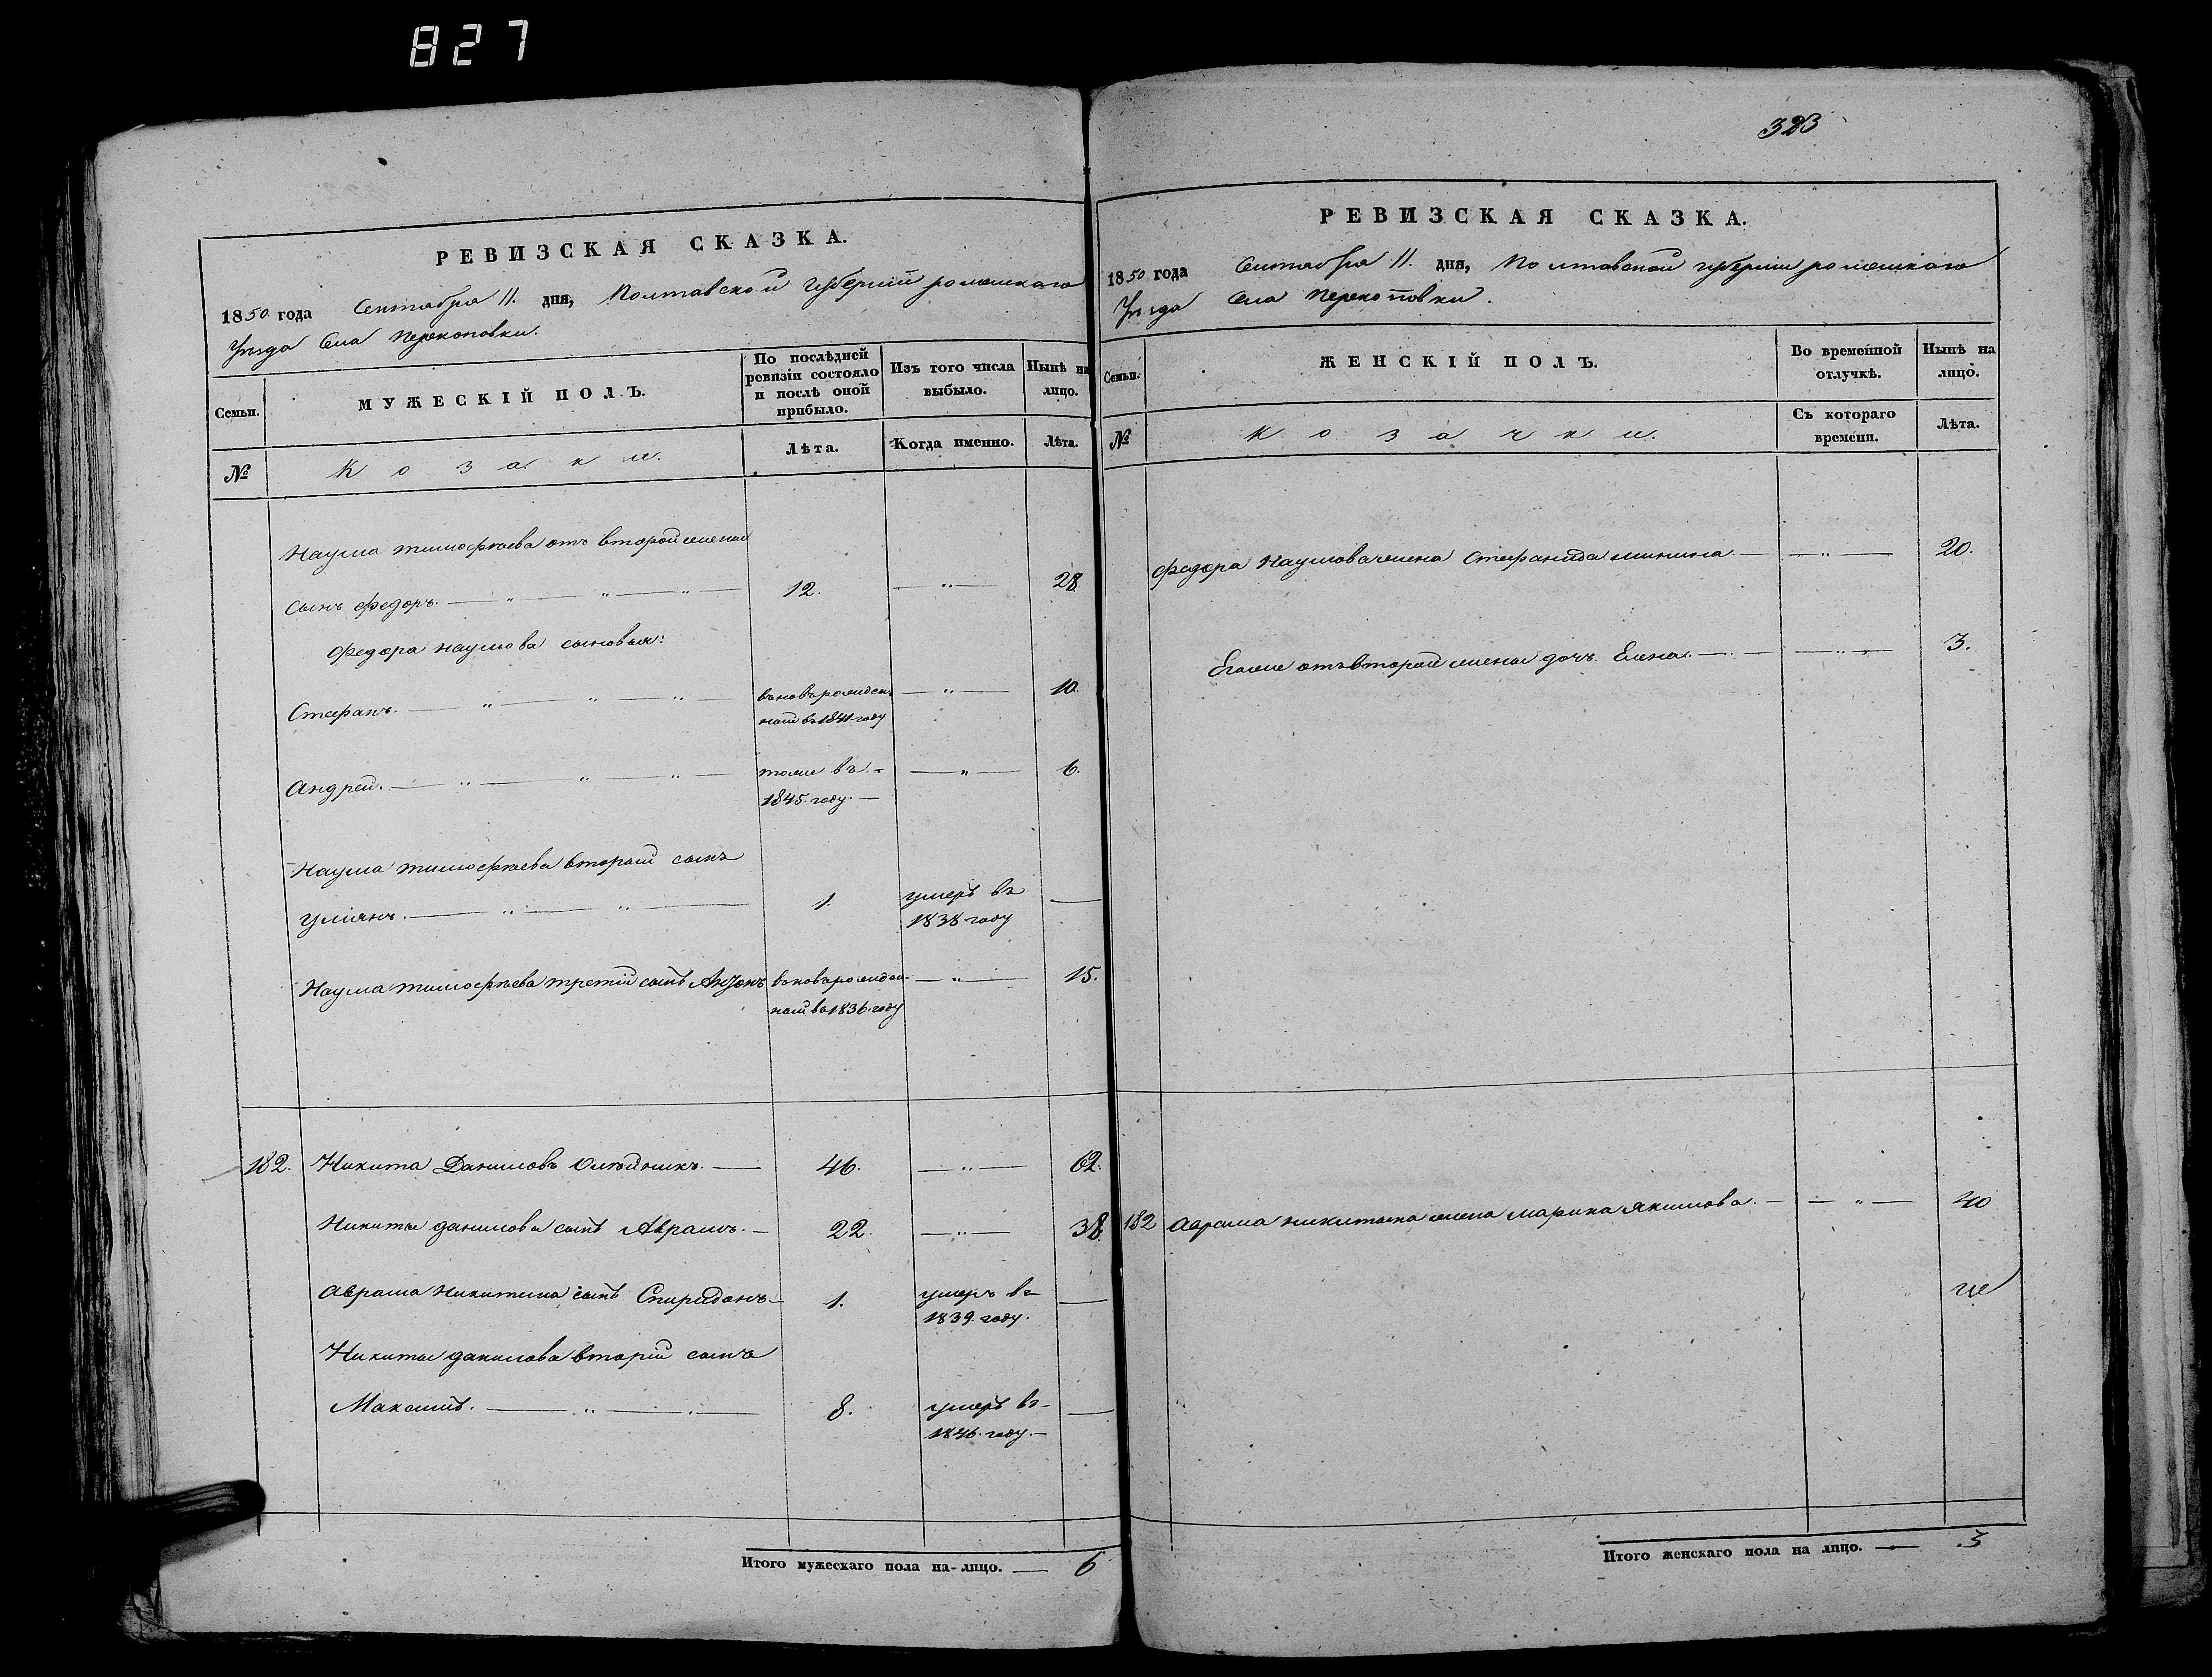 827
РЕВИЗСКАЯ СКАЗКА.
1850 года Сентября 11. дня, Полтавской губернии роменского
Уѣзда Села Перекоповки.
Семьи.
МУЖЕСКІЙ ПОЛЪ.
По послѣдней ревизіи состояло и послѣ оной прибыло.
Изъ того числа выбыло.
Нынѣ на лицо.
№
Козаки.
Лѣта.
Когда именно.
Лѣта.
Наума тимофѣева отъ второй жены
сынъ федоръ. — „ — „ — „ — 12. — „ — 28.
федора наумова сыновья:
Стефанъ. — „ — „ — „ — вновьрожден
ный въ 1841 году — „ — 10.
Андрей. — „ — „ — „ — тоже въ
1845. году. — — „ — 6.
Наума тимофѣева вторый сынъ
Уліянъ. — „ — „ — 1. умеръ въ
1838 году —
Наума тимофѣева третій сынъ вновьрожден
ный въ 1836 году — „ — 15.
182. Никита Даниловъ Олѣйникъ. — 46. — „ — 62.
Никиты данилова сынъ Аврамъ. — 22. — „ — 38.
Аврама Никитина сынъ Спиридонъ — 1. умеръ въ
1839. году. —
Никиты данилова вторій сынъ
Максимъ. — „ — „ — 8. умеръ въ
1846. году. — —
Итого мужескаго пола на-лицо. — 6
323
РЕВИЗСКАЯ СКАЗКА.
1850 года Сентября 11. дня, Полтавской губерніи роменского
Уѣзда Села Перекоповки.
Семьи.
ЖЕНСКІЙ ПОЛЪ.
Во временной отлучкѣ.
Нынѣ на лицо.
№
Козачки.
Съ котораго времени.
Лѣта.
федора Наумова жена Стефанида минина. — — „ — 20.
Егоже отъ второй жены дочь Елена. — „ — — „ — 3.
182 Аврама никитина жена Марина Якимова. — — „ — 40
Итого женскаго пола на лицо. — 3